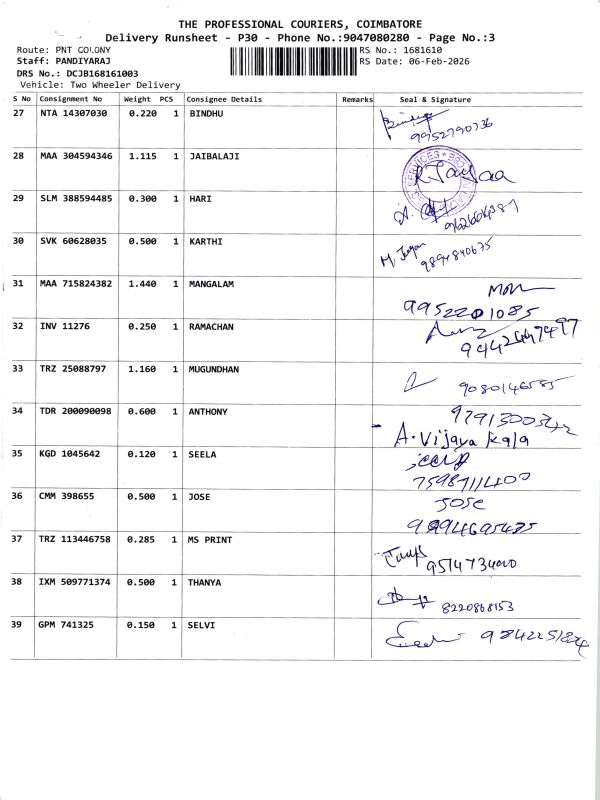 THE PROFESSIONAL COURIERS, COIMBATORE
Delivery Runsheet - P30 - Phone No.:9047080280 - Page No.:3
Route: PNT COLONY RS No.: 1681610
Staff: PANDIYARAJ RS Date: 06-Feb-2026
DRS No.: DCJB168161003
Vehicle: Two Wheeler Delivery
S No Consignment No Weight PCS Consignee Details Remarks Seal & Signature
27 NTA 14307030 0.220 1 BINDHU
9952790736
28 MAA 304594346 1.115 1 JAIBALAJI
29 SLM 388594485 0.300 1 HARI
30 SVK 60628035 0.500 1 KARTHI
9894840675
31 MAA 715824382 1.440 1 MANGALAM
9952201085
32 INV 11276 0.250 1 RAMACHAN
33 TRZ 25088797 1.160 1 MUGUNDHAN
9080146585
34 TDR 200090098 0.600 1 ANTHONY
A. Vijaya Kala
35 KGD 1045642 0.120 1 SEELA
7598711400
36 CMM 398655 0.500 1 JOSE
JOSE
37 TRZ 113446758 0.285 1 MS PRINT
9514734000
38 IXM 509771374 0.500 1 THANYA
8220868153
39 GPM 741325 0.150 1 SELVI